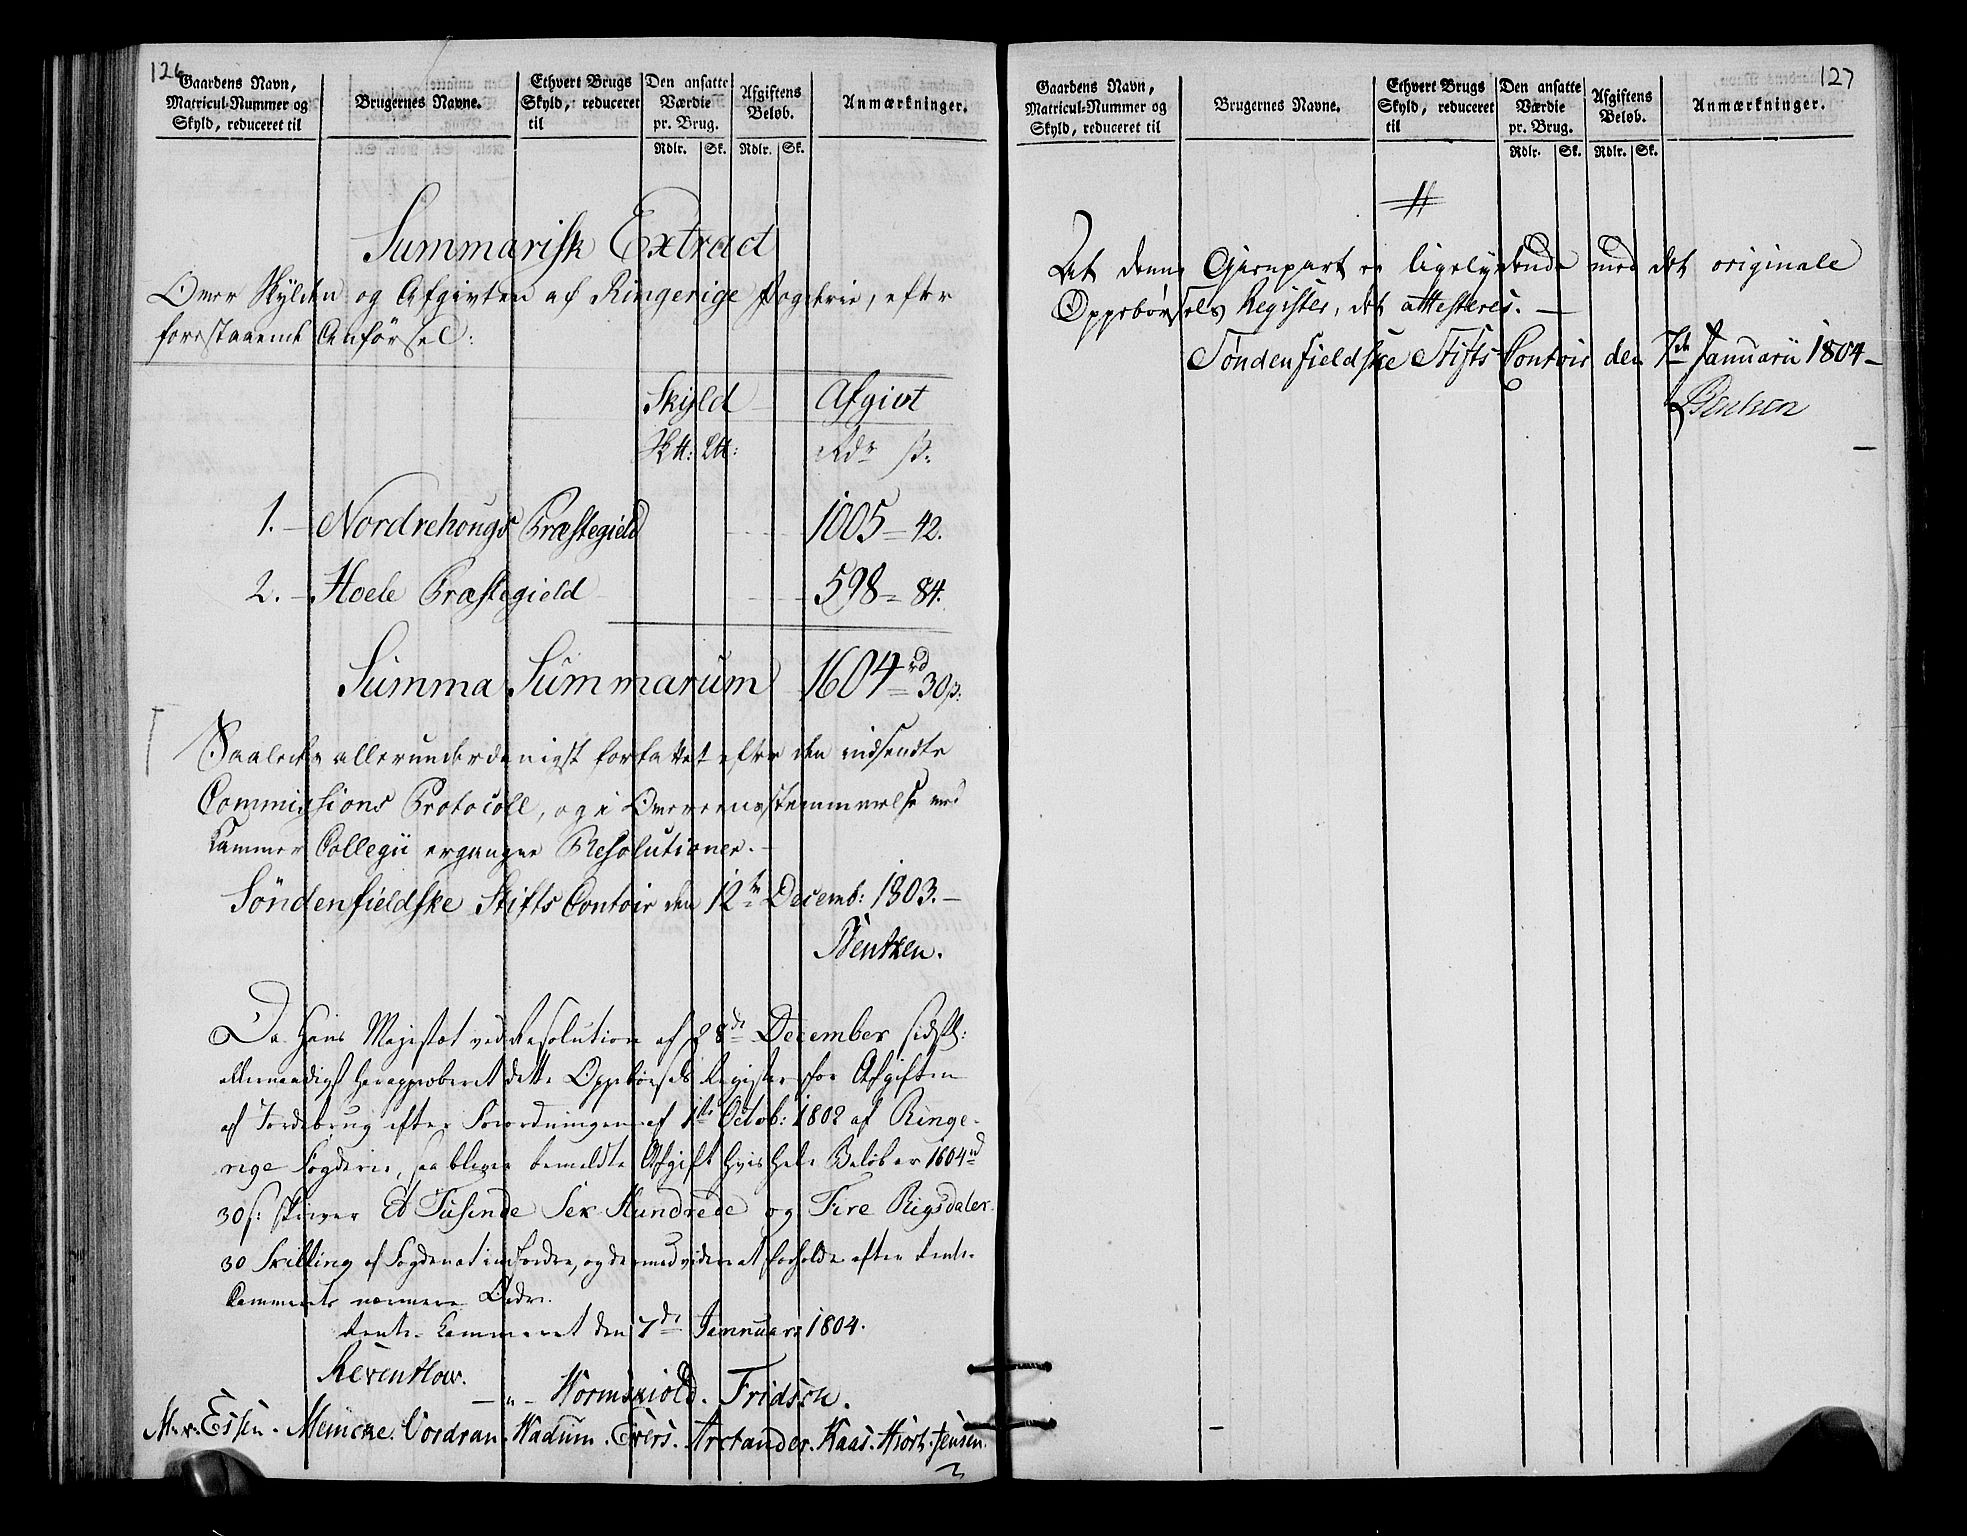 126
Gaardens Navn,
Matricul-Nummer og
Skyld, reduceret til
Brugernes Navne.
Ethvert Brugs
Skyld, reduceret
til
Den ansatte
Værdie
pr. Brug.
Rdlr. Sk.
Afgiftens
Beløb.
Rdlr. Sk.
Anmærkninger.
Summarisk Extract
Over Skylden og Afgivten af Ringerige Fogderie, efter
forestaaende Anførsel:
Skyld Afgivt
Rdr ß:
1. Nordrehougs Præstegield 1005 = 42.
2. Hoele Præstegield 598 = 84.
Summa Summarum 1604 rd 30 ß:
Saaledes allerunderdanigst forfattet efter den indsendte
Commissions Protocoll, og i Overeensstemmelse med
Kammer Collegii ergangne Resolutioner.
Søndenfieldske Stifts Contoir den 12te Decemb: 1803.
Bentzen.
Da Hans Majestæt ved Resolution af 28de December sidstl:
allernaadigst har approberet dette Oppebørsels Register for Afgiften
af Jordebrug efter Forordningen af 1ste Octob: 1802 af Ringe-
rige Fogderie, saa bliver bemeldte Afgift hvis hele Beløb er 1604 rd
30 ß: skriver Et Tusende Sex Hundrede og Fire Rigsdaler
30 Skilling af Fogden at indfordre, og dermed videre at forholde efter Rente-
Cammerets nærmere Ordre.
Rente-Kammeret den 7de Januari 1804.
Reventlow.
Wormskiold. Fridsch.
M. v. Essen. Meincke. Cordsan. Wadum. Evers. Arctander. Kaas. Hiort. Jensen.
127
Gaardens Navn,
Matricul-Nummer og
Skyld, reduceret til
Brugernes Navne.
Ethvert Brugs
Skyld, reduceret
til
Den ansatte
Værdie
pr. Brug.
Rdlr. Sk.
Afgiftens
Beløb.
Rdlr. Sk.
Anmærkninger.
At denne Gienpart er ligelydende med det originale
Oppebørsels Register, det attesteres.
Søndenfieldske Stifts Contoir den 7de Januarii 1804
Bentzen